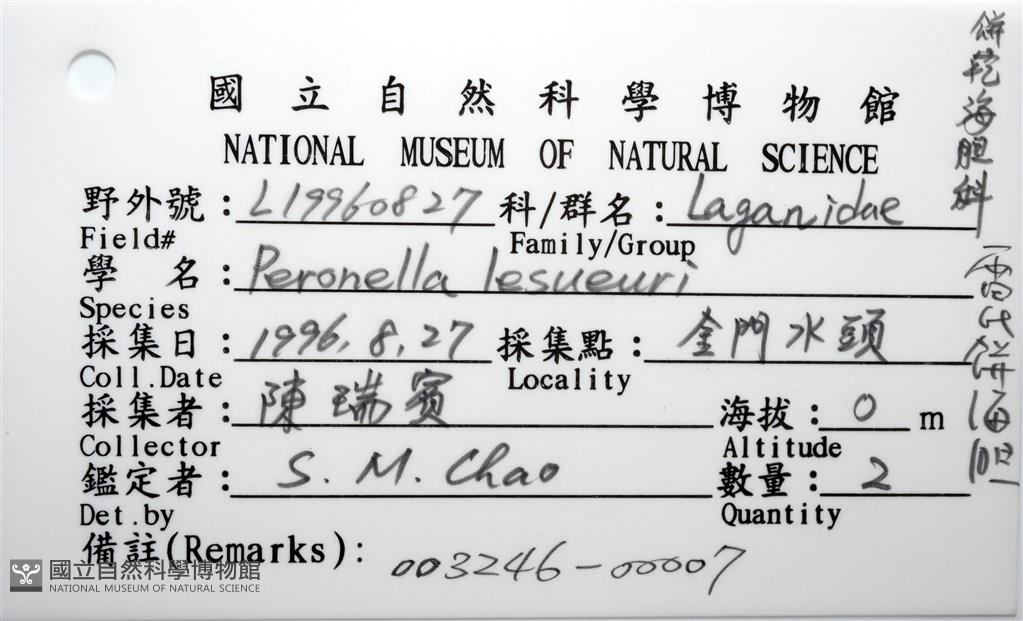 國立自然科學博物館
NATIONAL MUSEUM OF NATURAL SCIENCE
野外號：L19960827 科/群名：Laganidae
Field# Family/Group
學 名：Peronella lesueuri
Species
採集日：1996.8.27 採集點：金門水頭
Coll.Date Locality
採集者：陳瑞賓 海拔：0 m
Collector Altitude
鑑定者：S. M. Chao 數量：2
Det.by Quantity
備註(Remarks)： 003246-00007
餅乾海胆科
雷氏餅海胆
國立自然科學博物館
NATIONAL MUSEUM OF NATURAL SCIENCE